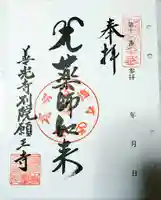 奉拝
年 月 日
光薬師如来
善光寺別院願王寺